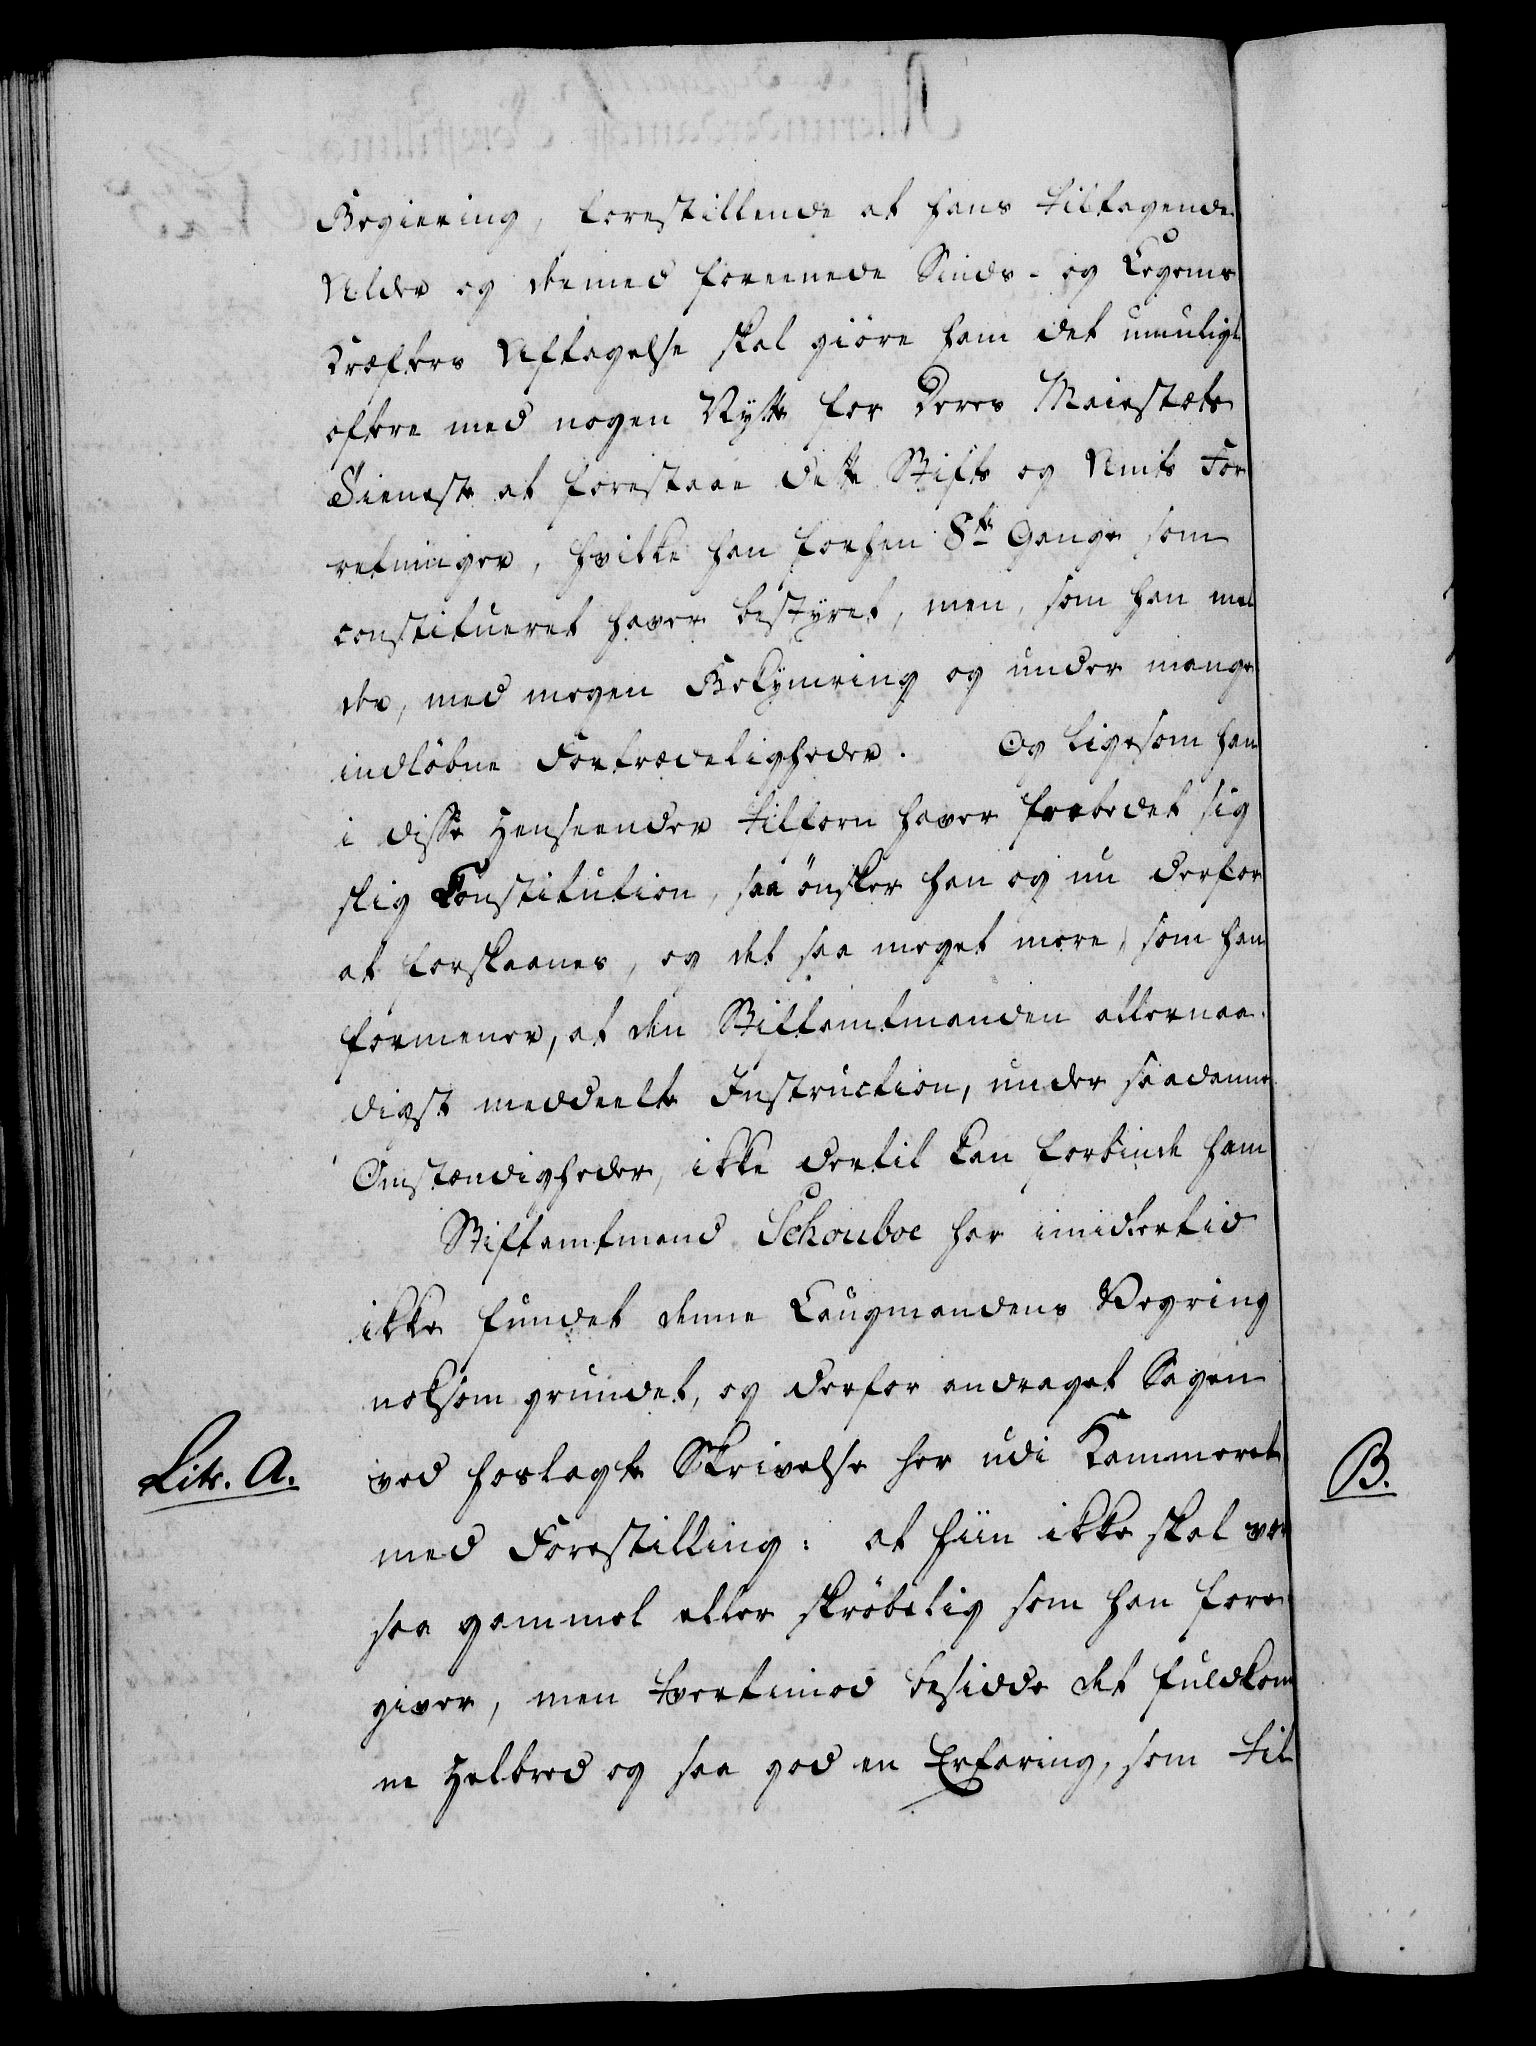 Begiering, forestillende at hans tiltagende
Alder og dermed foreenede Sinds- og Legems
Kræfters Aftagelse skal giöre ham det umuligt
oftere med nogen Nytte for Deres Maiestæts
Tieneste at forestaae dette Stifts og Amts For
retninger, hvilke han forhen 8te Gange som
constitueret haver bestyret, men, som han mel
der, med megen Bekymring og under mange
indløbne Fortrædeligheder. Og ligesom han
i disse Henseender tilforn haver frabedet sig
slig Constitution, saa önsker han og nu derfor
at forskaanes, og det saa meget mere, som han
formener, at den Stiftamtmanden allernaa-
digst meddeelte Instruction, under saadanne
Omstændigheder, ikke dertil kan forbinde ham
Stiftamtmand Schouboe har imidlertid
ikke fundet denne Laugmandens Vegring
noksom grundet, og derfor andraget Sagen
Litr. A.
ved hoslagte Skrivelse her udi Kammeret
B.
med Forestilling: at hiin ikke skal være
saa gammel eller skröbelig som han fore
giver, men tvertimod besidde det fuldkom
ne Helbred og saa god en Erfaring, som til